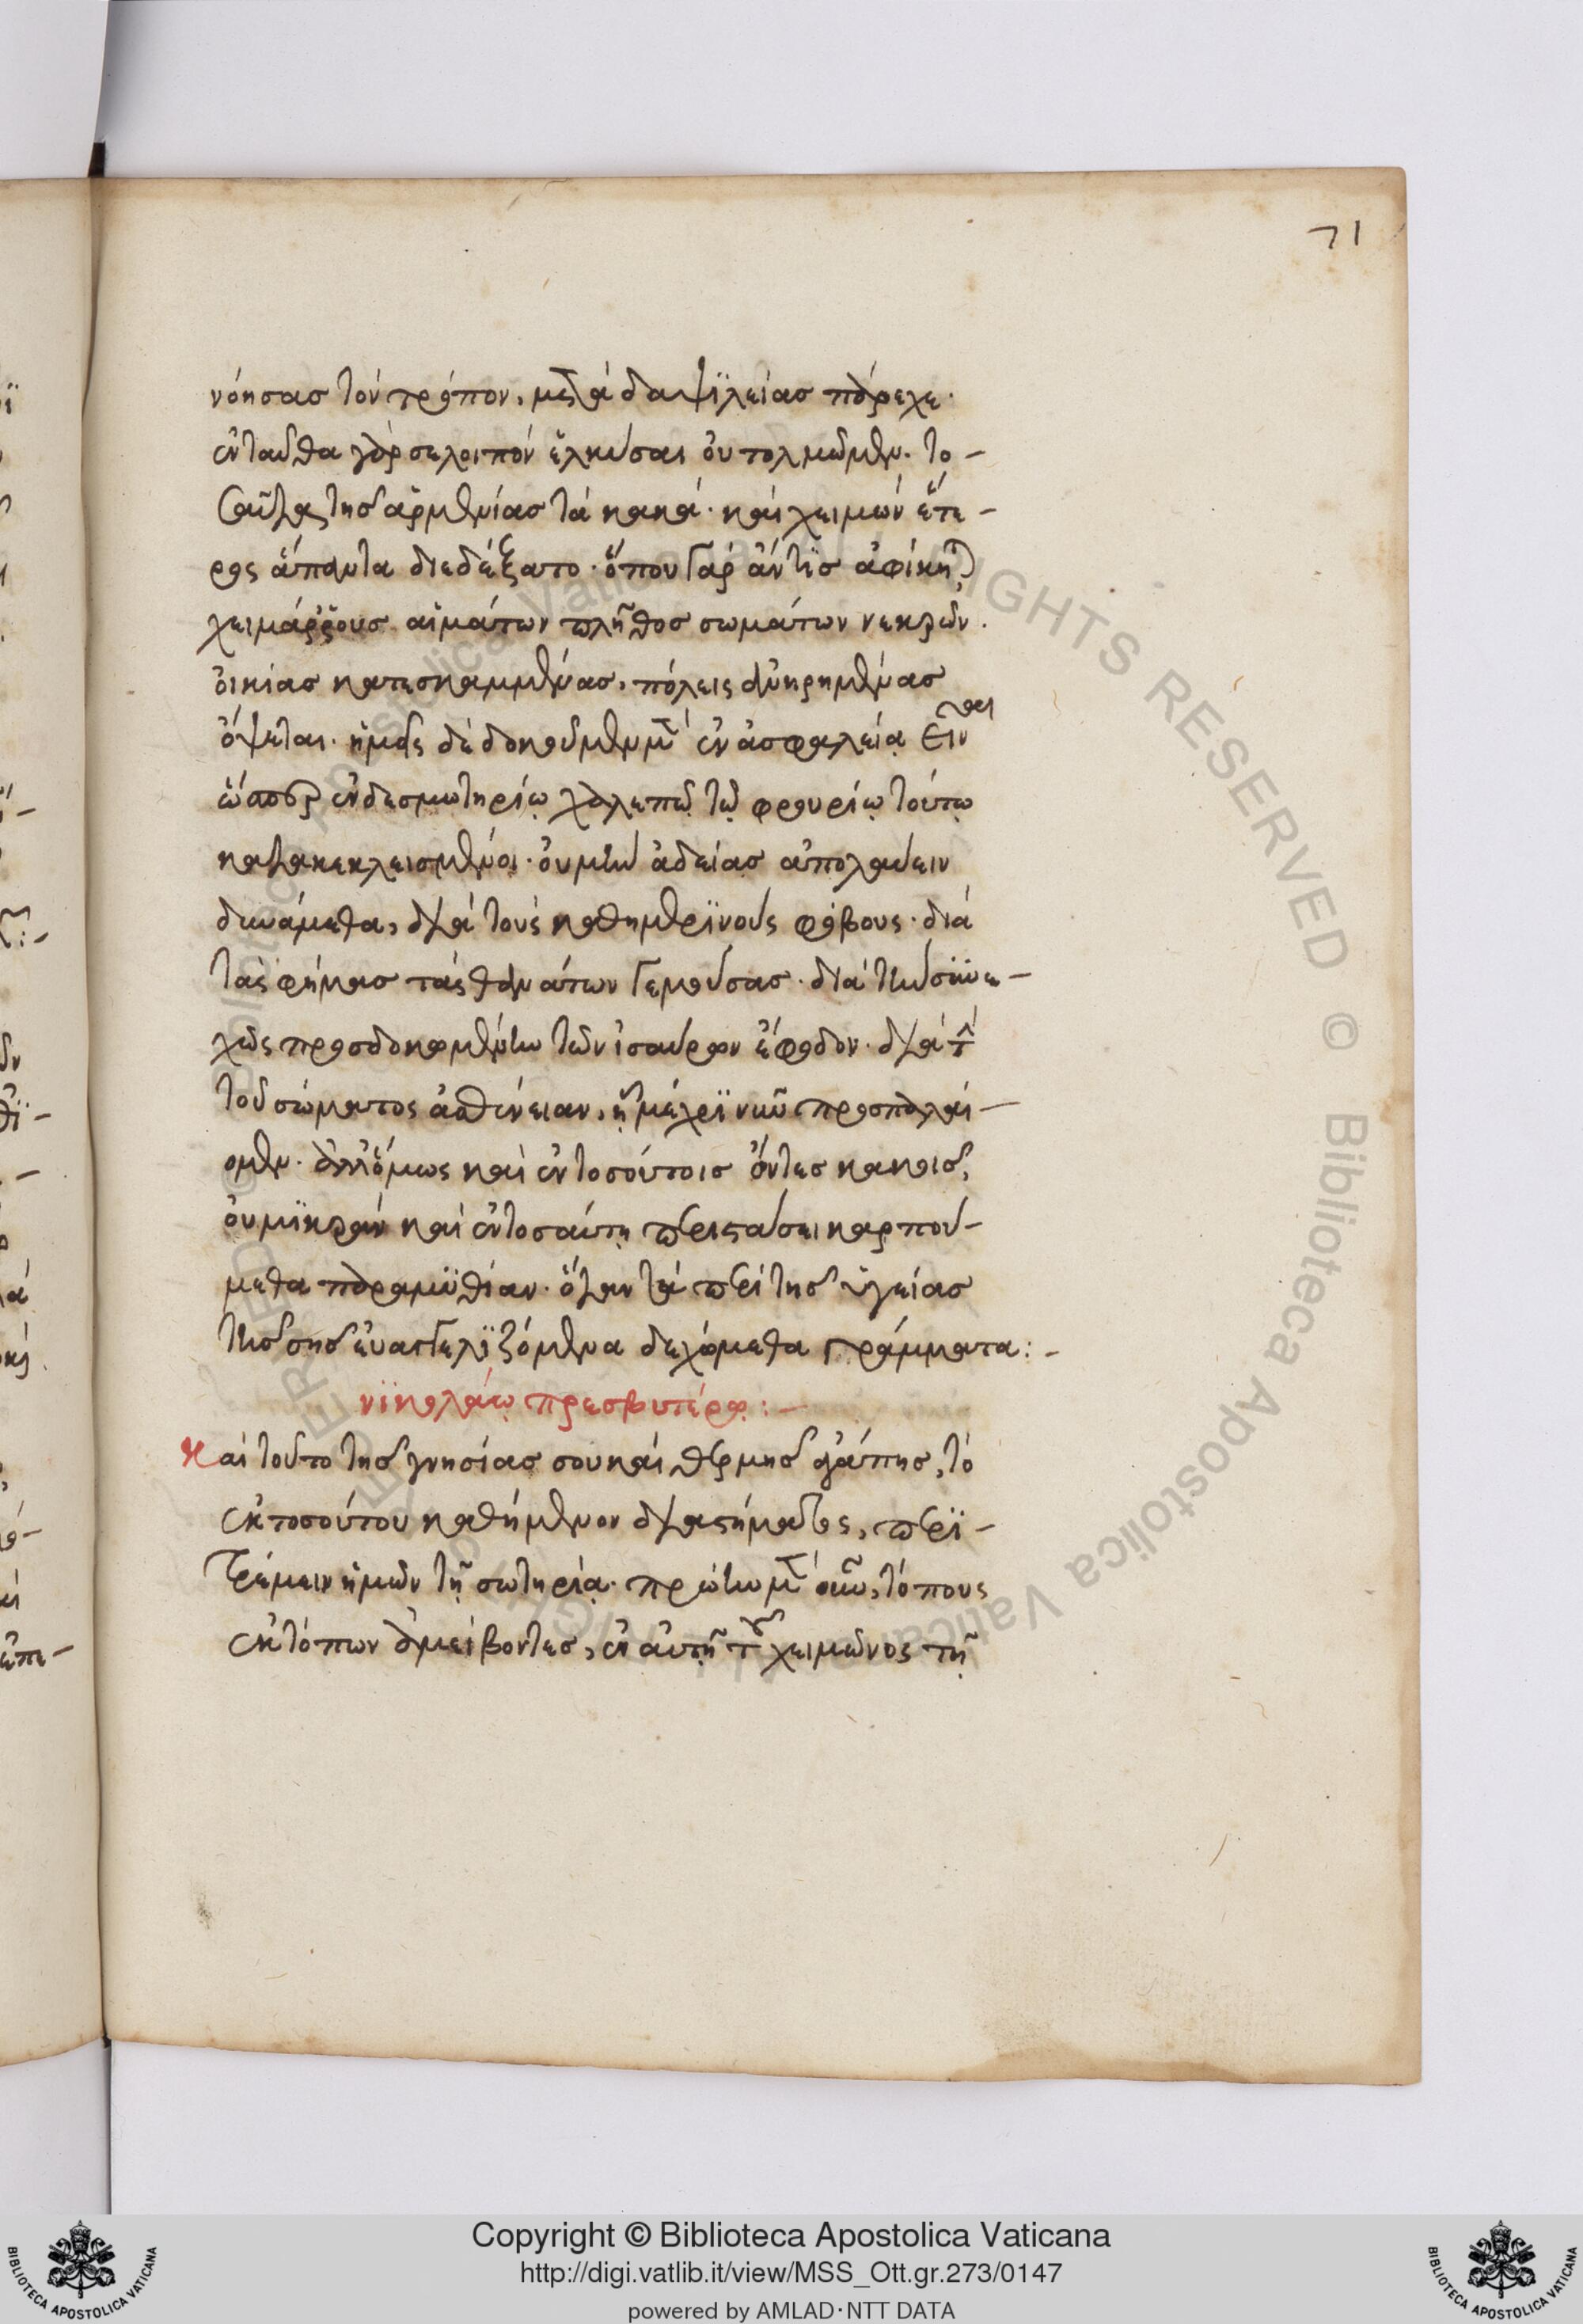 71
νόησας τὸν τρόπον, μετὰ δαψϊλείας πάρεχε·
ἐνταῦθα γάρ σε λοιπὸν ἑλκύσαι οὐ τολμῶμεν· το-
σαῦτα τῆς ἀρμενίας τὰ κακά· καὶ χειμὼν ἕτε-
ρος ἅπαντα διεδέξατο· ὅπου γὰρ ἄν τϊς ἀφίκηται
χειμάρρους αἱμάτων πλῆθος σωμάτων νεκρῶν·
οἰκίας κατεσκαμμένας, πόλεις ἀνηρημένας
ὄψεται· ἡμεῖς δὲ δοκοῦμεν μὲν ἐν ἀσφαλείᾳ εἶναι
ὥσπερ ἐν δεσμωτηρίῳ χαλεπῷ τῷ φρουρίῳ τούτῳ
κατακεκλεισμένοι· οὐ μὴν ἀδείας ἀπολαύειν
δυνάμεθα, διὰ τοὺς καθημερϊνοὺς φόβους· διὰ
τὰς φήμας τὰς θανάτων γεμούσας· διὰ τὴν συνε-
χῶς προσδοκωμένην τῶν ἰσαύρων ἔφοδον· διὰ τὴν
τοῦ σώματος ἀσθένειαν, ᾗ μέχρϊ νῦν προσπαλαί-
ομεν· ἀλλ' ὅμως καὶ ἐν τοσούτοις ὄντες κακοῖς,
οὐ μϊκρὰν καὶ ἐν τοσαύτῃ περιστάσει καρπού-
μεθα παραμϋθίαν· ὅταν τὰ περὶ τῆς ὑγείας
τῆς σῆς εὐαγγελϊζόμενα δεχόμεθα γράμματα:-
νϊκολάῳ πρεσβυτέρῳ:-
Καὶ τοῦτο τῆς γνησίας σου καὶ θερμῆς ἀγάπης, τὸ
ἐκ τοσούτου καθήμενον διαστήματος, περϊ-
τρέμειν ἡμῶν τῇ σωτηρίᾳ· πρώην μὲν οὖν, τόπους
ἐκ τόπων ἀμείβοντες, ἐν αὐτῇ τοῦ χειμῶνος τῇ
Copyright © Biblioteca Apostolica Vaticana
http://digi.vatlib.it/view/MSS_Ott.gr.273/0147
powered by AMLAD·NTT DATA